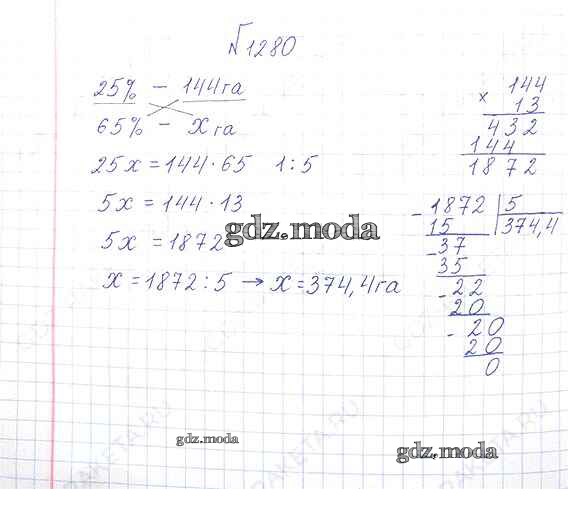 №1280
25% – 144га
65% – Xга
25x = 144 · 65 1:5
5x = 144 · 13
5x = 1872
x = 1872 : 5 → x = 374,4га
144
× 13
432
144
1872
- 1872 | 5
15 374,4
- 37
35
- 22
20
- 20
20
0
gdz.moda
gdz.moda
gdz.moda